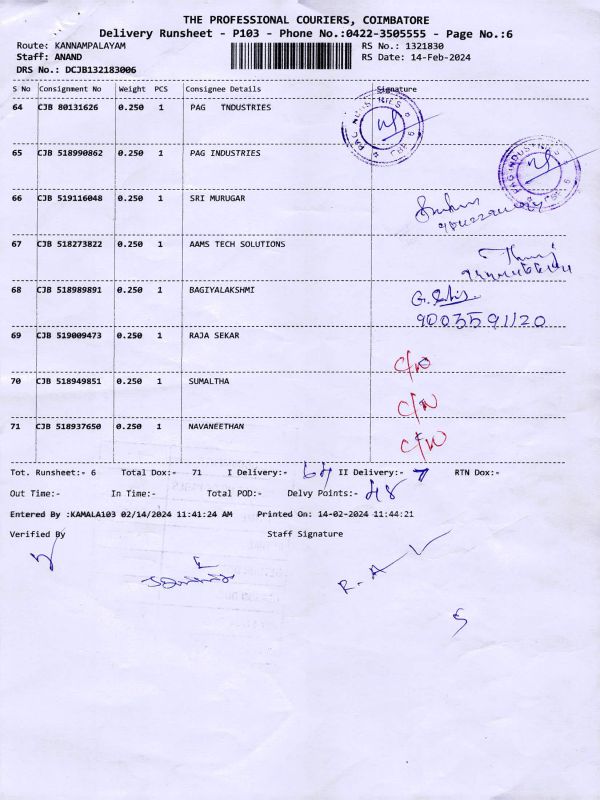 THE PROFESSIONAL COURIERS, COIMBATORE
Delivery Runsheet - P103 - Phone No.:0422-3505555 - Page No.:6
Route: KANNAMPALAYAM RS No.: 1321830
Staff: ANAND RS Date: 14-Feb-2024
DRS No.: DCJB132183006
S No Consignment No Weight PCS Consignee Details Signature
64 CJB 80131626 0.250 1 PAG TNDUSTRIES
65 CJB 518990862 0.250 1 PAG INDUSTRIES
PAG INDUSTRIES
66 CJB 519116048 0.250 1 SRI MURUGAR
67 CJB 518273822 0.250 1 AAMS TECH SOLUTIONS
68 CJB 518989891 0.250 1 BAGIYALAKSHMI
9003591120
69 CJB 519009473 0.250 1 RAJA SEKAR
C/N
70 CJB 518949851 0.250 1 SUMALTHA
C/N
71 CJB 518937650 0.250 1 NAVANEETHAN
C/N
Tot. Runsheet:- 6 Total Dox:- 71 I Delivery:- 64 II Delivery:- 7 RTN Dox:-
Out Time:- In Time:- Total POD:- Delvy Points:- 48
Entered By :KAMALA103 02/14/2024 11:41:24 AM Printed On: 14-02-2024 11:44:21
Verified By Staff Signature